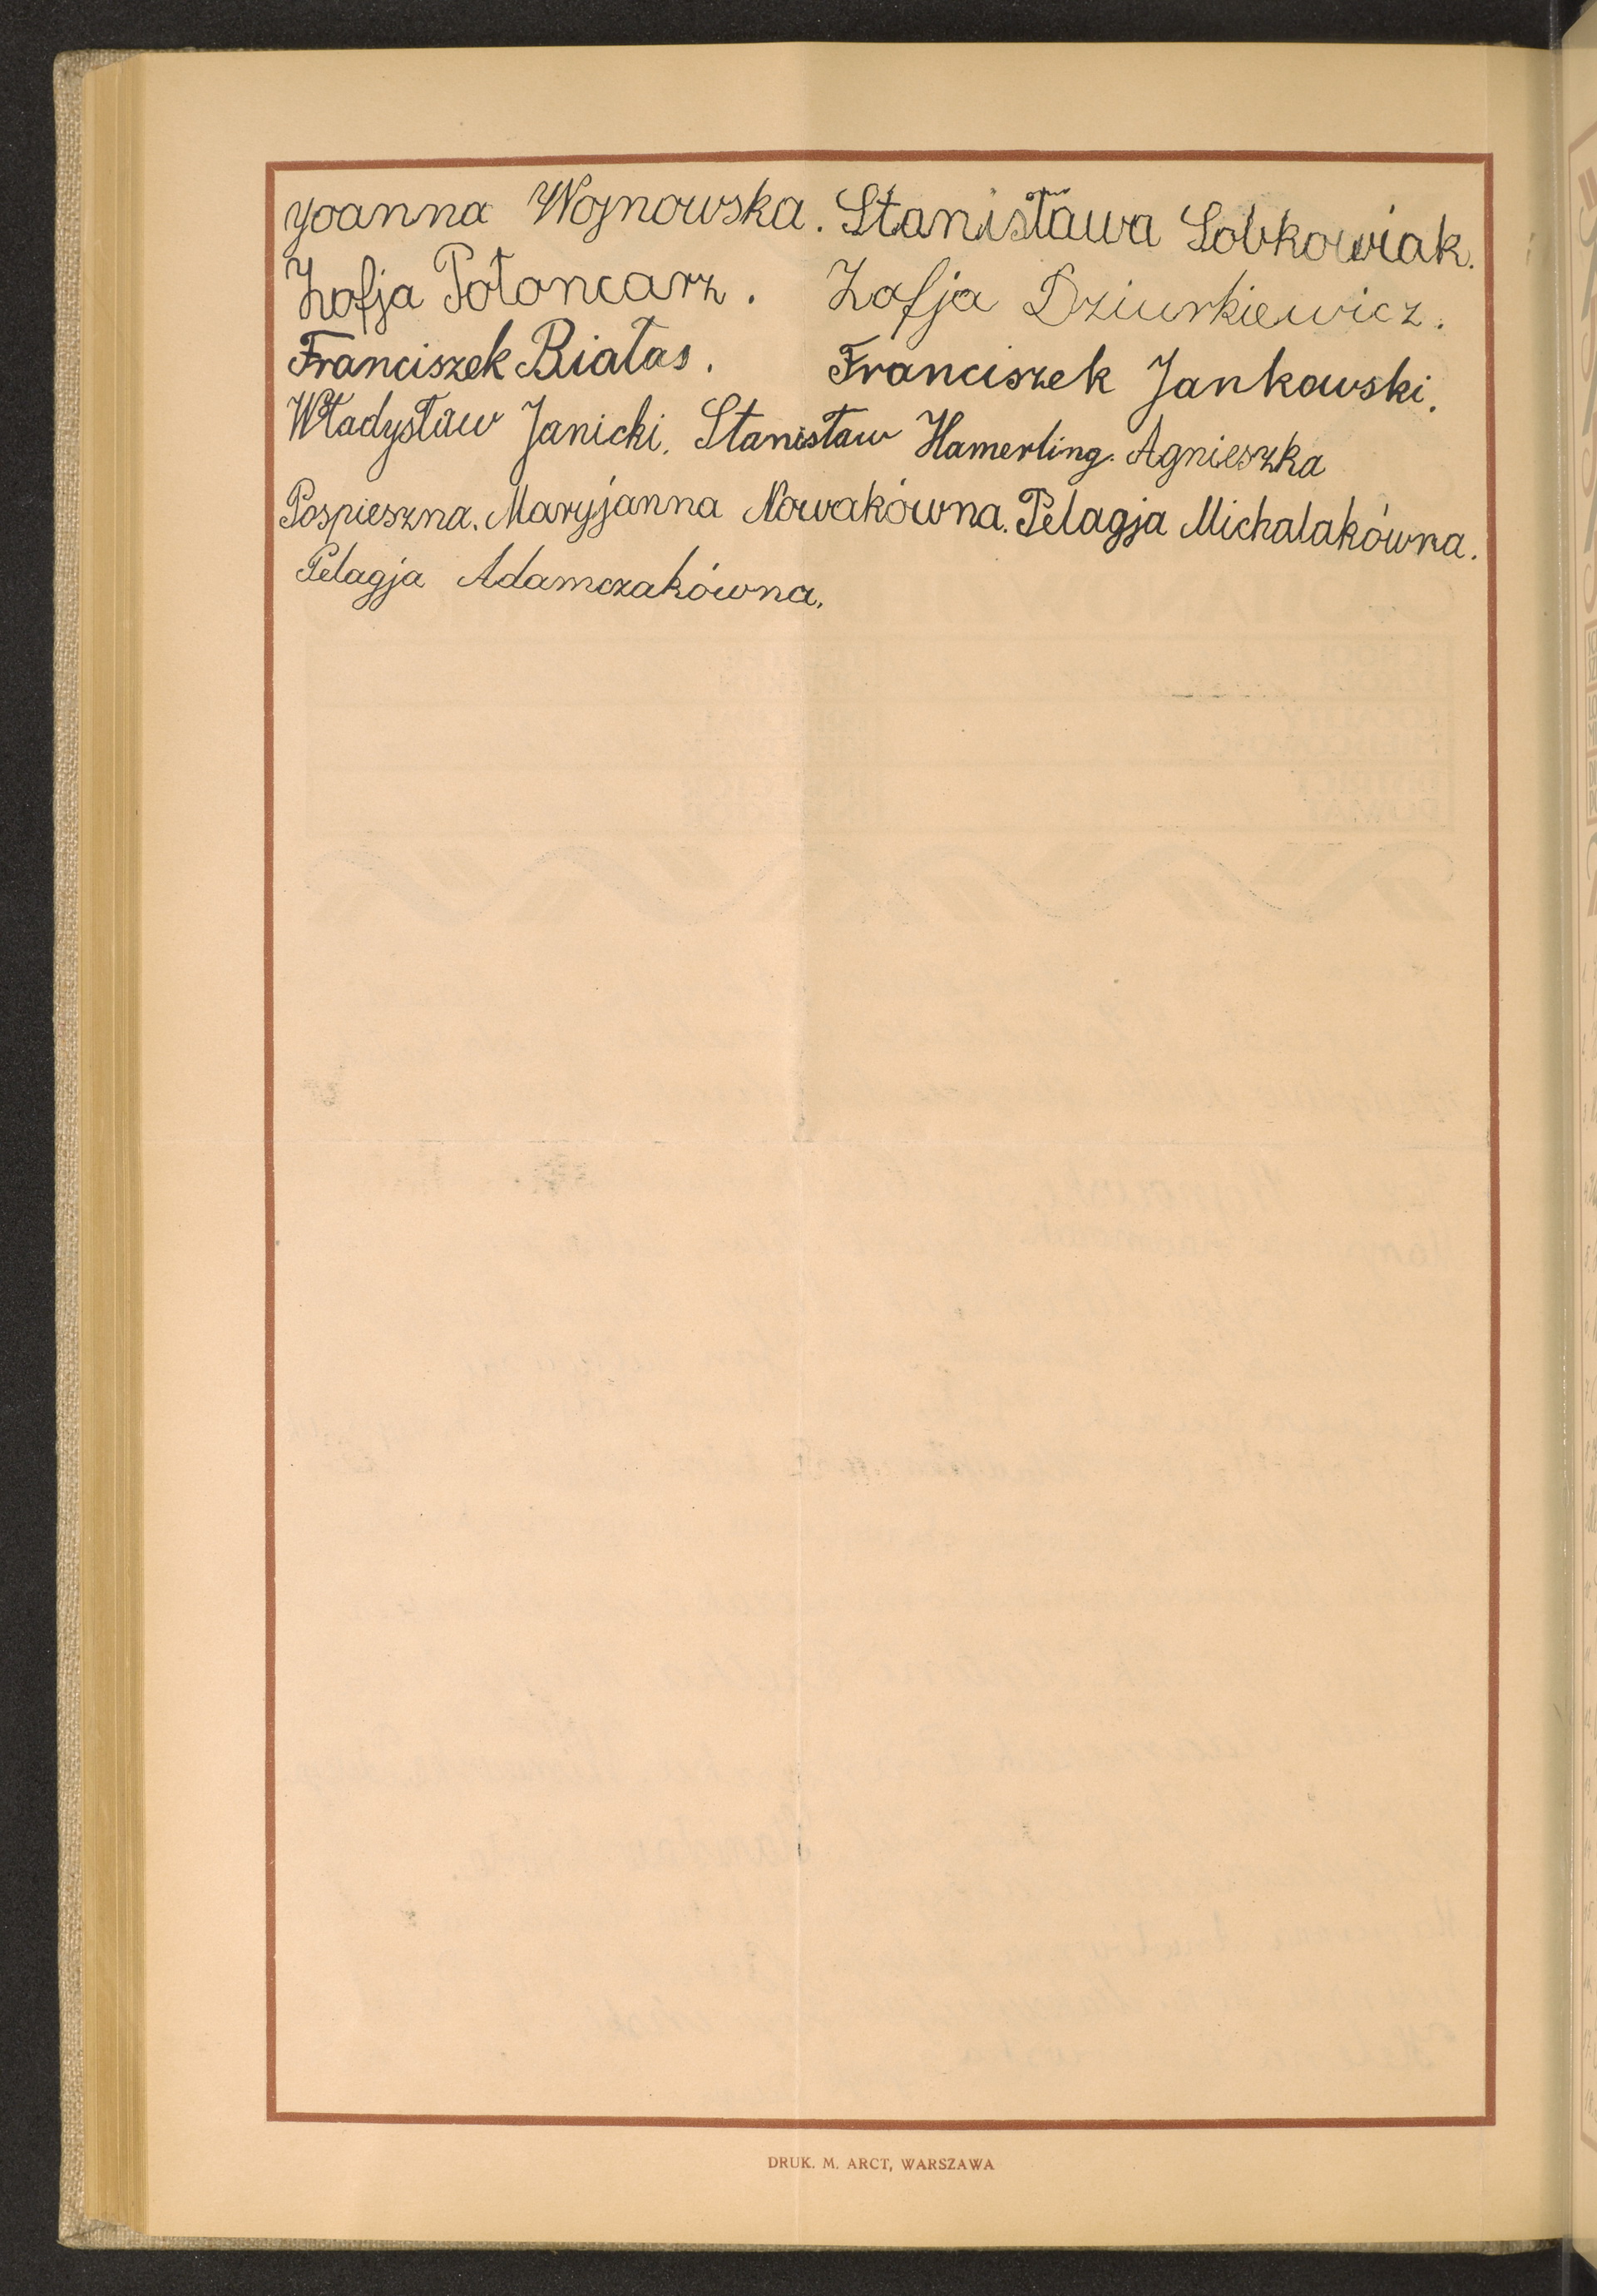 Yoanna Wojnowska. Stanisława Sobkowiak.
Zofja Połoncarz. Zofja Dziurkiewicz.
Franciszek Białas. Franciszek Jankowski.
Władysław Janicki. Stanisław Hamerling. Agnieszka
Pospieszna. Maryjanna Nowakówna. Pelagja Michalakówna.
Pelagja Adamczakówna.
DRUK. M. ARCT, WARSZAWA